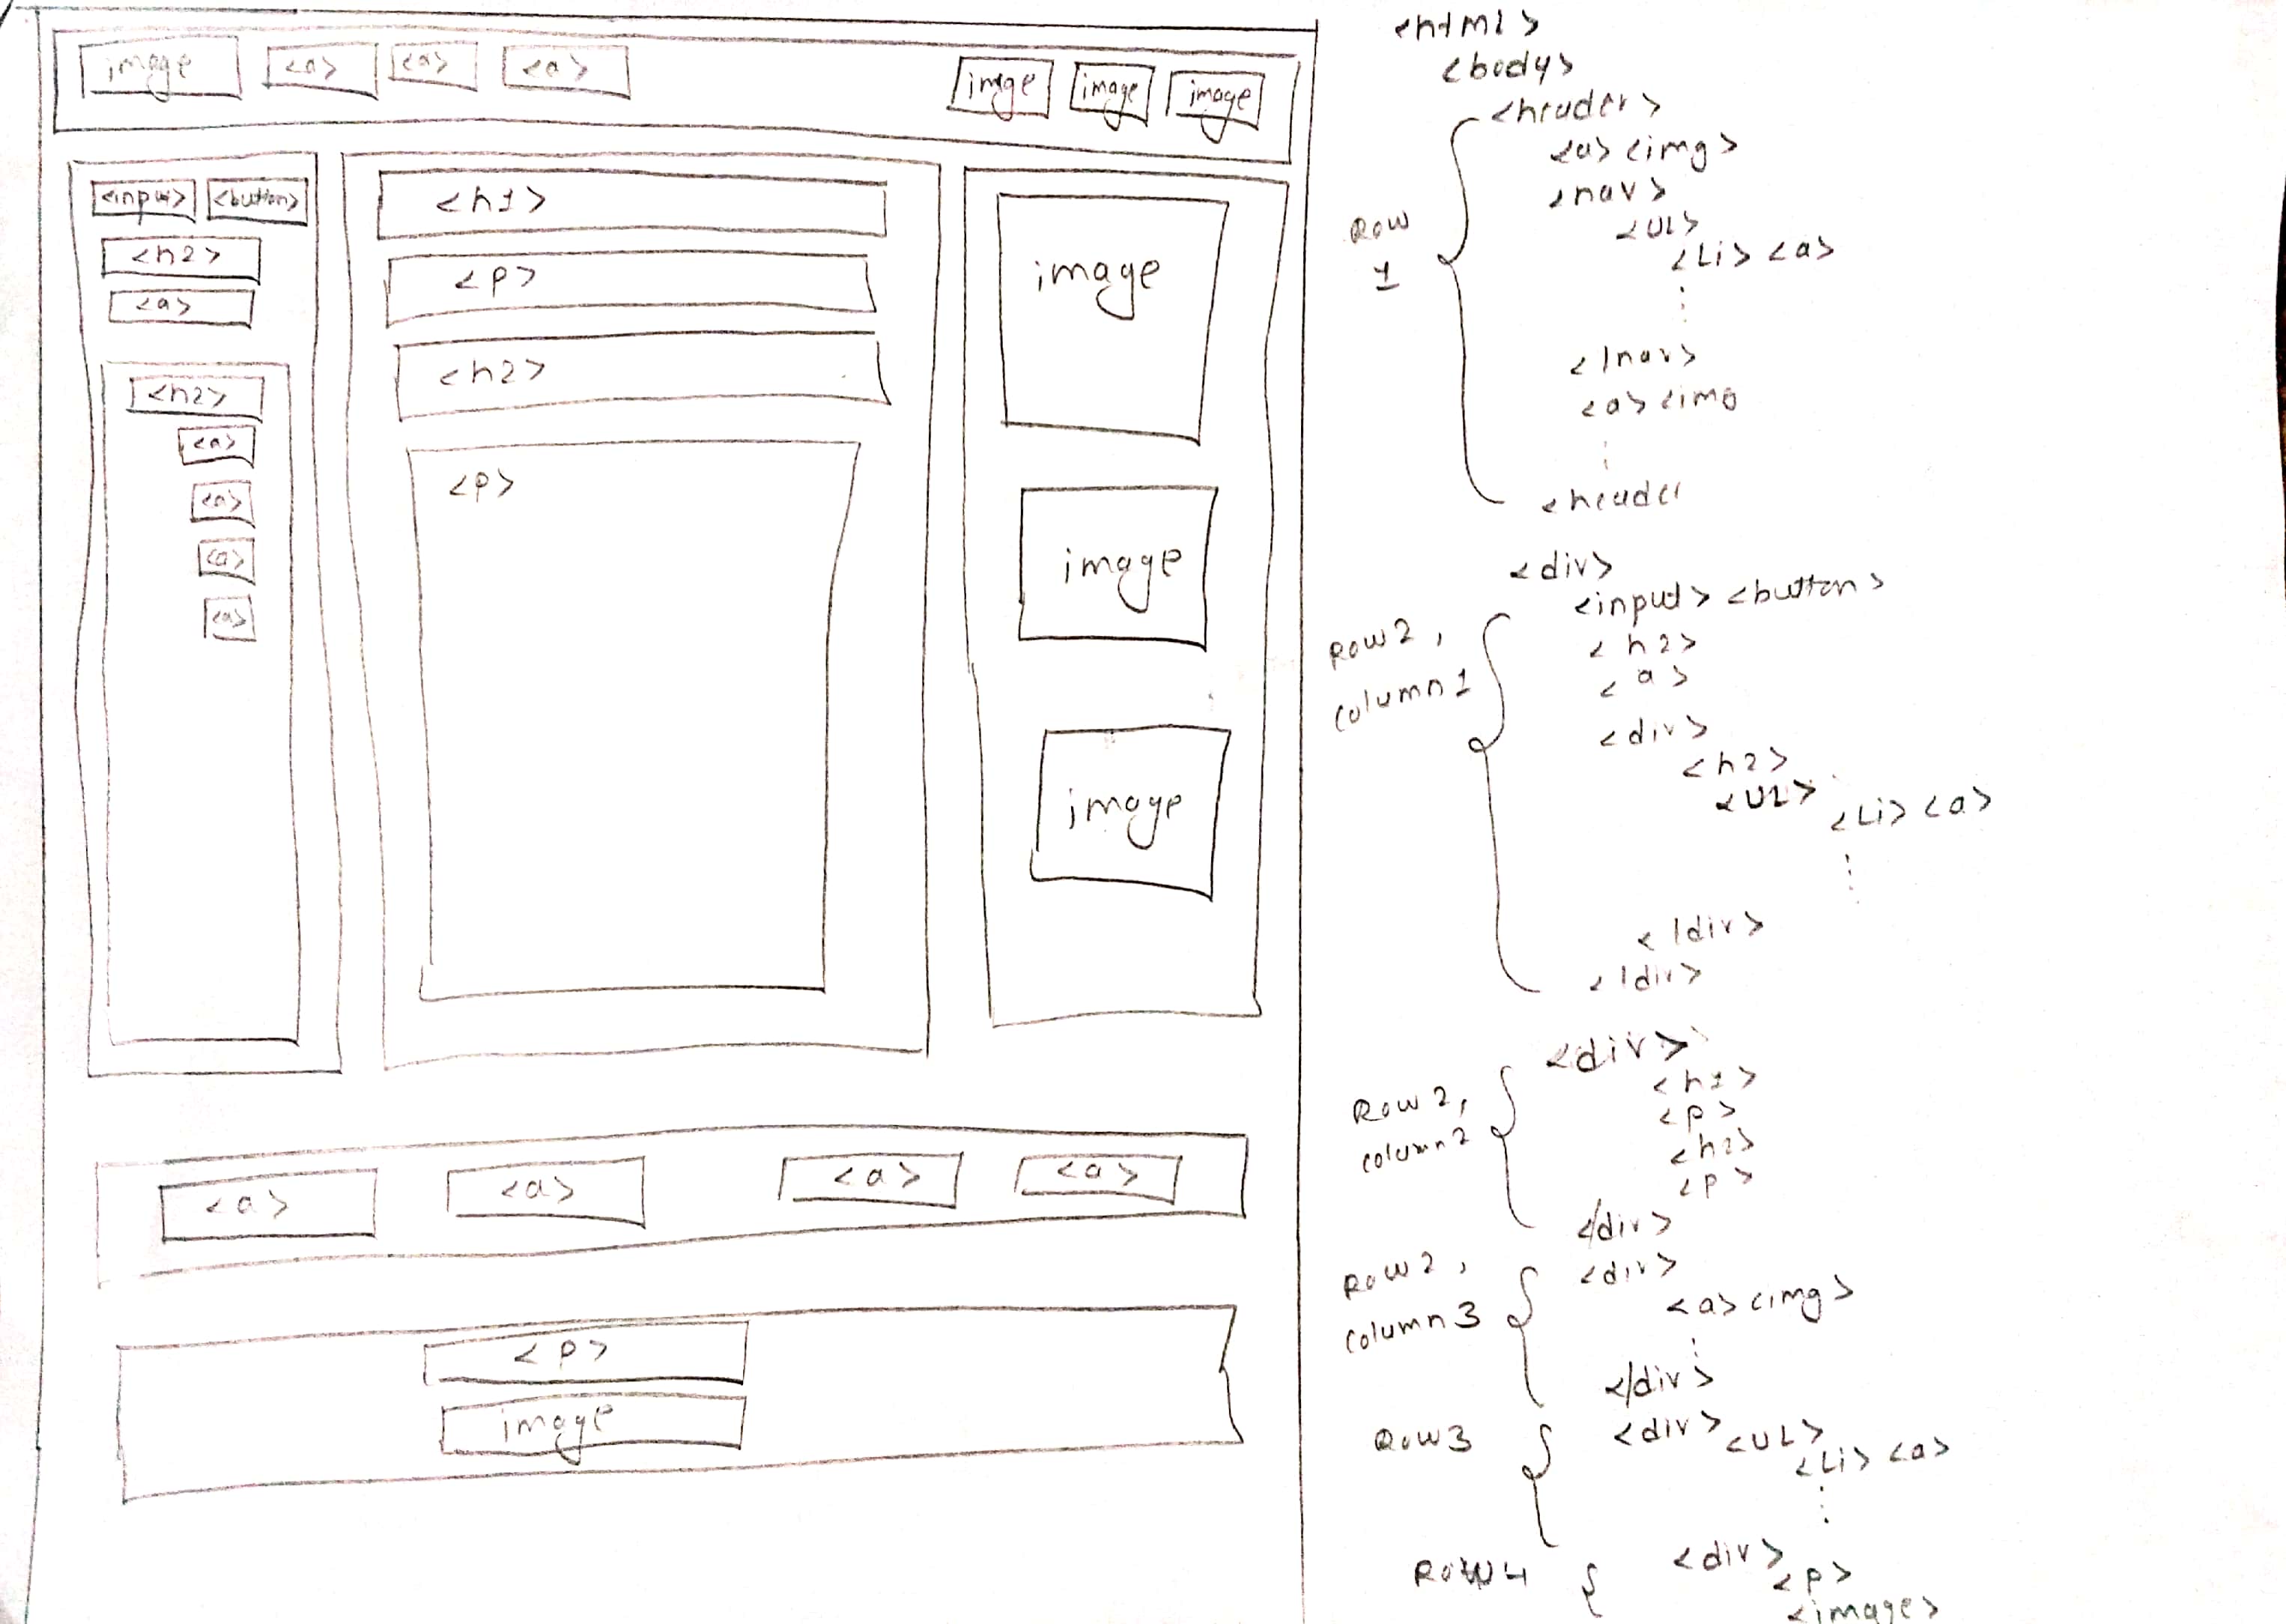 image <a> <a> <a> image image image
<input> <button>
<h2>
<a>
<h2>
<a>
<a>
<a>
<a>
<h1>
<p>
<h2>
<p>
image
image
image
<a> <a> <a> <a>
<p>
image
<html>
<body>
<header>
<a> <img>
<nav>
Row
1
<UL>
<Li> <a>
</nav>
<a> <img
<header
<div>
<input> <button>
Row 2,
column 1
<h2>
<a>
<div>
<h2>
<UL>
<Li> <a>
</div>
</div>
<div>
<h1>
Row 2,
column 2
<p>
<h2>
<p>
</div>
Row 2,
column 3
<div>
<a> <img>
</div>
Row 3
<div> <UL>
<Li> <a>
Row 4
<div>
<p>
<image>